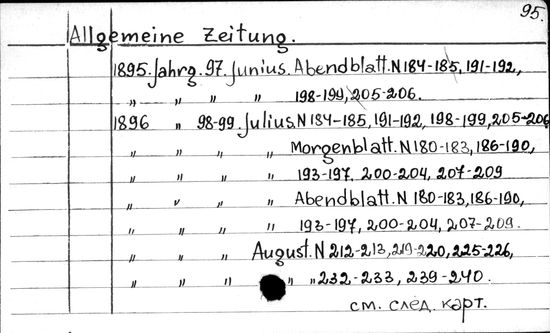 95.
Allgemeine Zeitung.
1895. Jahrg. 97. Junius. Abendblatt. N 184-185, 191-192,
„ „ „ „ 198-199, 205-206.
1896 „ 98-99. Julius. N 184-185, 191-192, 198-199, 205-206
„ „ „ „ Morgenblatt. N 180-183, 186-190,
„ „ „ „ 193-197, 200-204, 207-209
„ „ „ „ Abendblatt. N 180-183, 186-190,
„ „ „ „ 193-197, 200-204, 207-209.
„ „ „ August. N 212-213, 219-220, 225-226,
„ „ „ „ „ 232-233, 239-240.
см. след. карт.